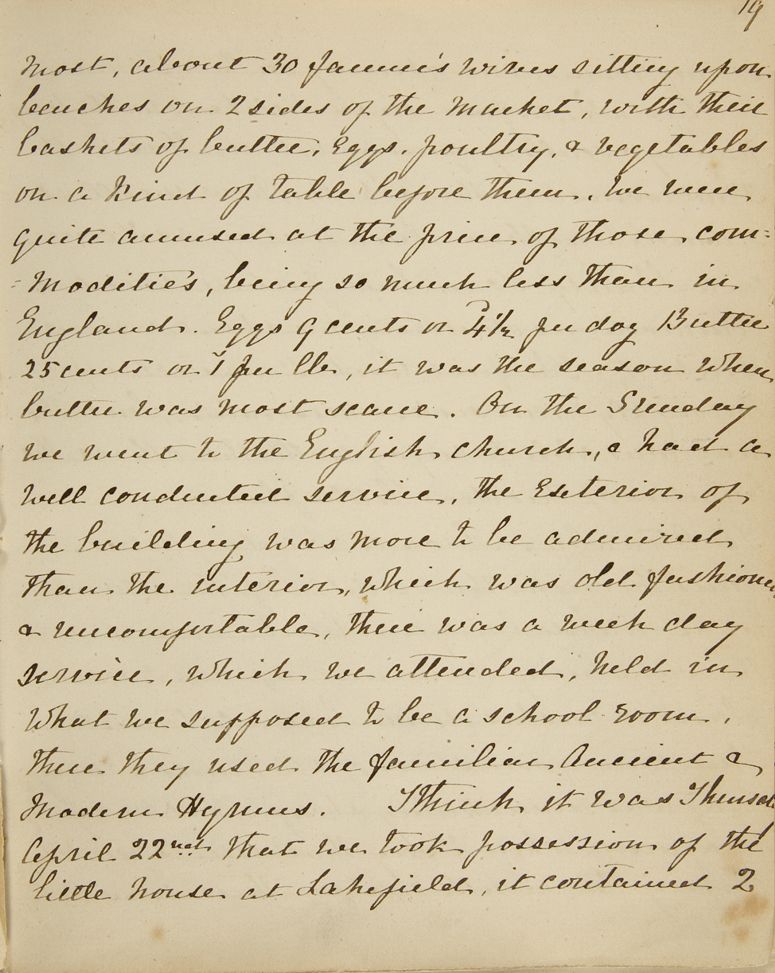 19
most, about 30 farmer's wives sitting upon
benches on 2 sides of the market, with their
baskets of butter, Eggs, poultry, & vegetables
on a kind of table before them, we were
quite amused at the price of those com=
=modities, being so much less than in
England. Eggs 9 cents or 4½ per doz Butter
25 cents or 1/ per lb, it was the season when
butter was most scarce. On the Sunday
we went to the English church, & had a
well conducted service, the Exterior of
the building was more to be admired
than the interior, which was old fashioned
& uncomfortable, there was a week day
service, which we attended, held in
what we supposed to be a school room,
there they used the familiar Ancient &
Modern Hymns. I think it was Thursd
April 22nd that we took possession of the
little house at Lakefield, it contained 2